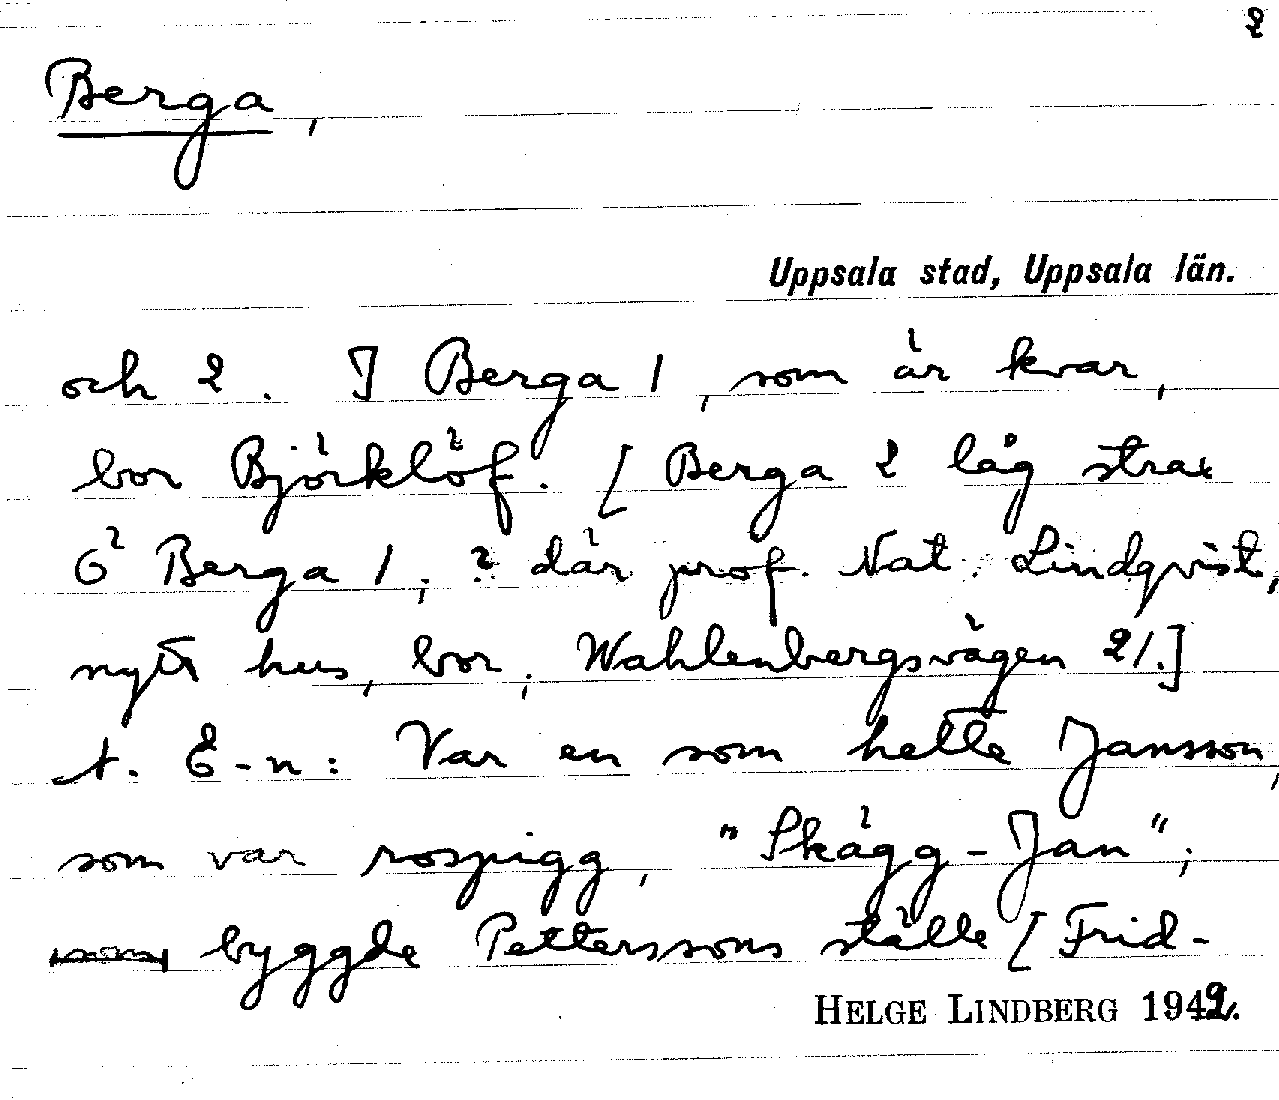 2
Berga,
Uppsala stad, Uppsala län.
och 2. I Berga 1, som är kvar,
bor Björklöf. [Berga 2 låg strax
Ö Berga 1, ? där prof. Nat. Lindqvist,
nytt hus, bor, Wahlenbergsvägen 21.]
t. E-n: Var en som hette Jansson,
som var rospigg, "Skägg-Jan",
som byggde Petterssons ställe [Frid-
HELGE LINDBERG 1942.